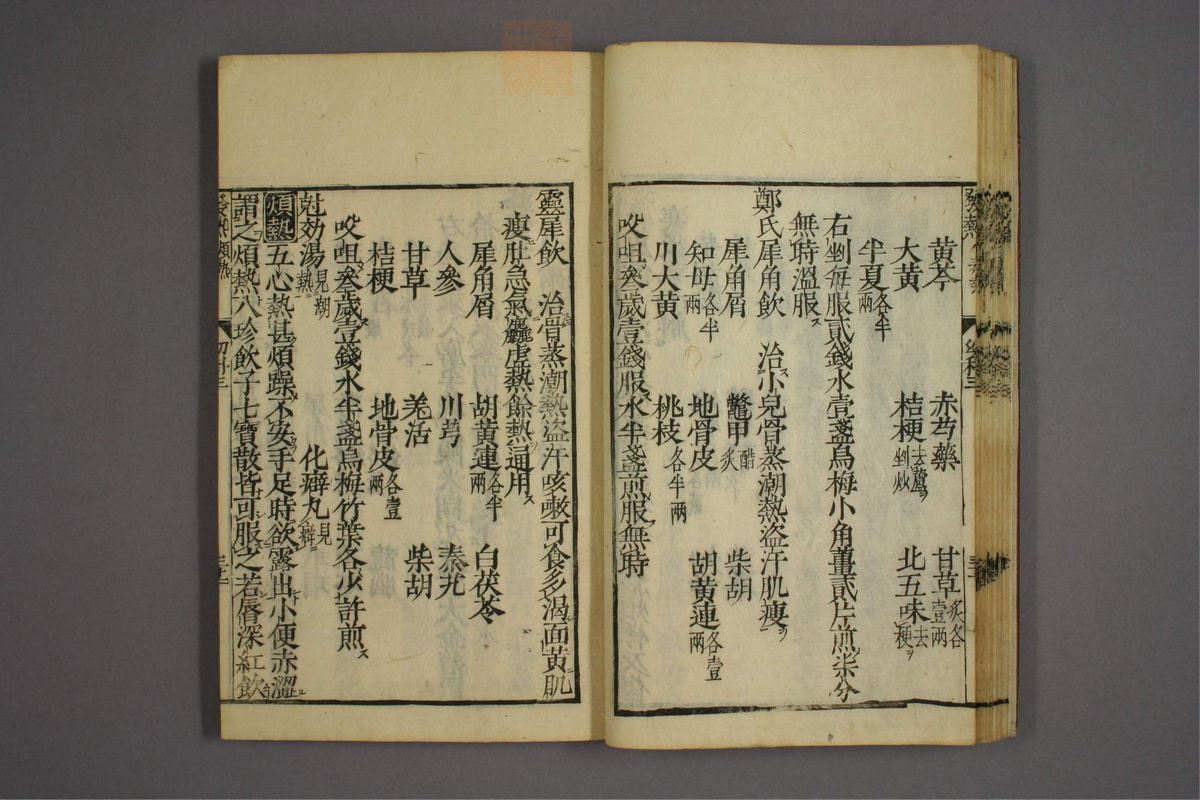 黃芩　赤芍藥　甘草炙各壹兩
大黃　桔梗去蘆剉炒　北五味去梗
半夏各半兩
右剉每服貳錢水壹盞烏梅小角薑貳片煎柒分
無時溫服
鄭氏犀角飲　治小兒骨蒸潮熱盜汗肌瘦
犀角屑　鱉甲醋炙　柴胡
知母各半兩　地骨皮　胡黃連各壹兩
川大黃　桃枝各半兩
㕮咀叄歲壹錢服水半盞煎服無時
靈犀飲　治骨蒸潮熱盜汗咳嗽可食多渴面黃肌
瘦肚急氣麤虛熱餘熱通用
犀角屑　胡黃連各半兩　白茯苓
人參　川芎　秦艽
甘草　羗活　柴胡
桔梗　地骨皮各壹兩
㕮咀叄歲壹錢水半盞烏梅竹葉各少許煎
尅効湯見潮熱　化癖丸見癖
煩熱五心熱甚煩躁不安手足時欲露出小便赤澀
謂之煩熱八珍飲子七寶散皆可服之若唇深紅飲